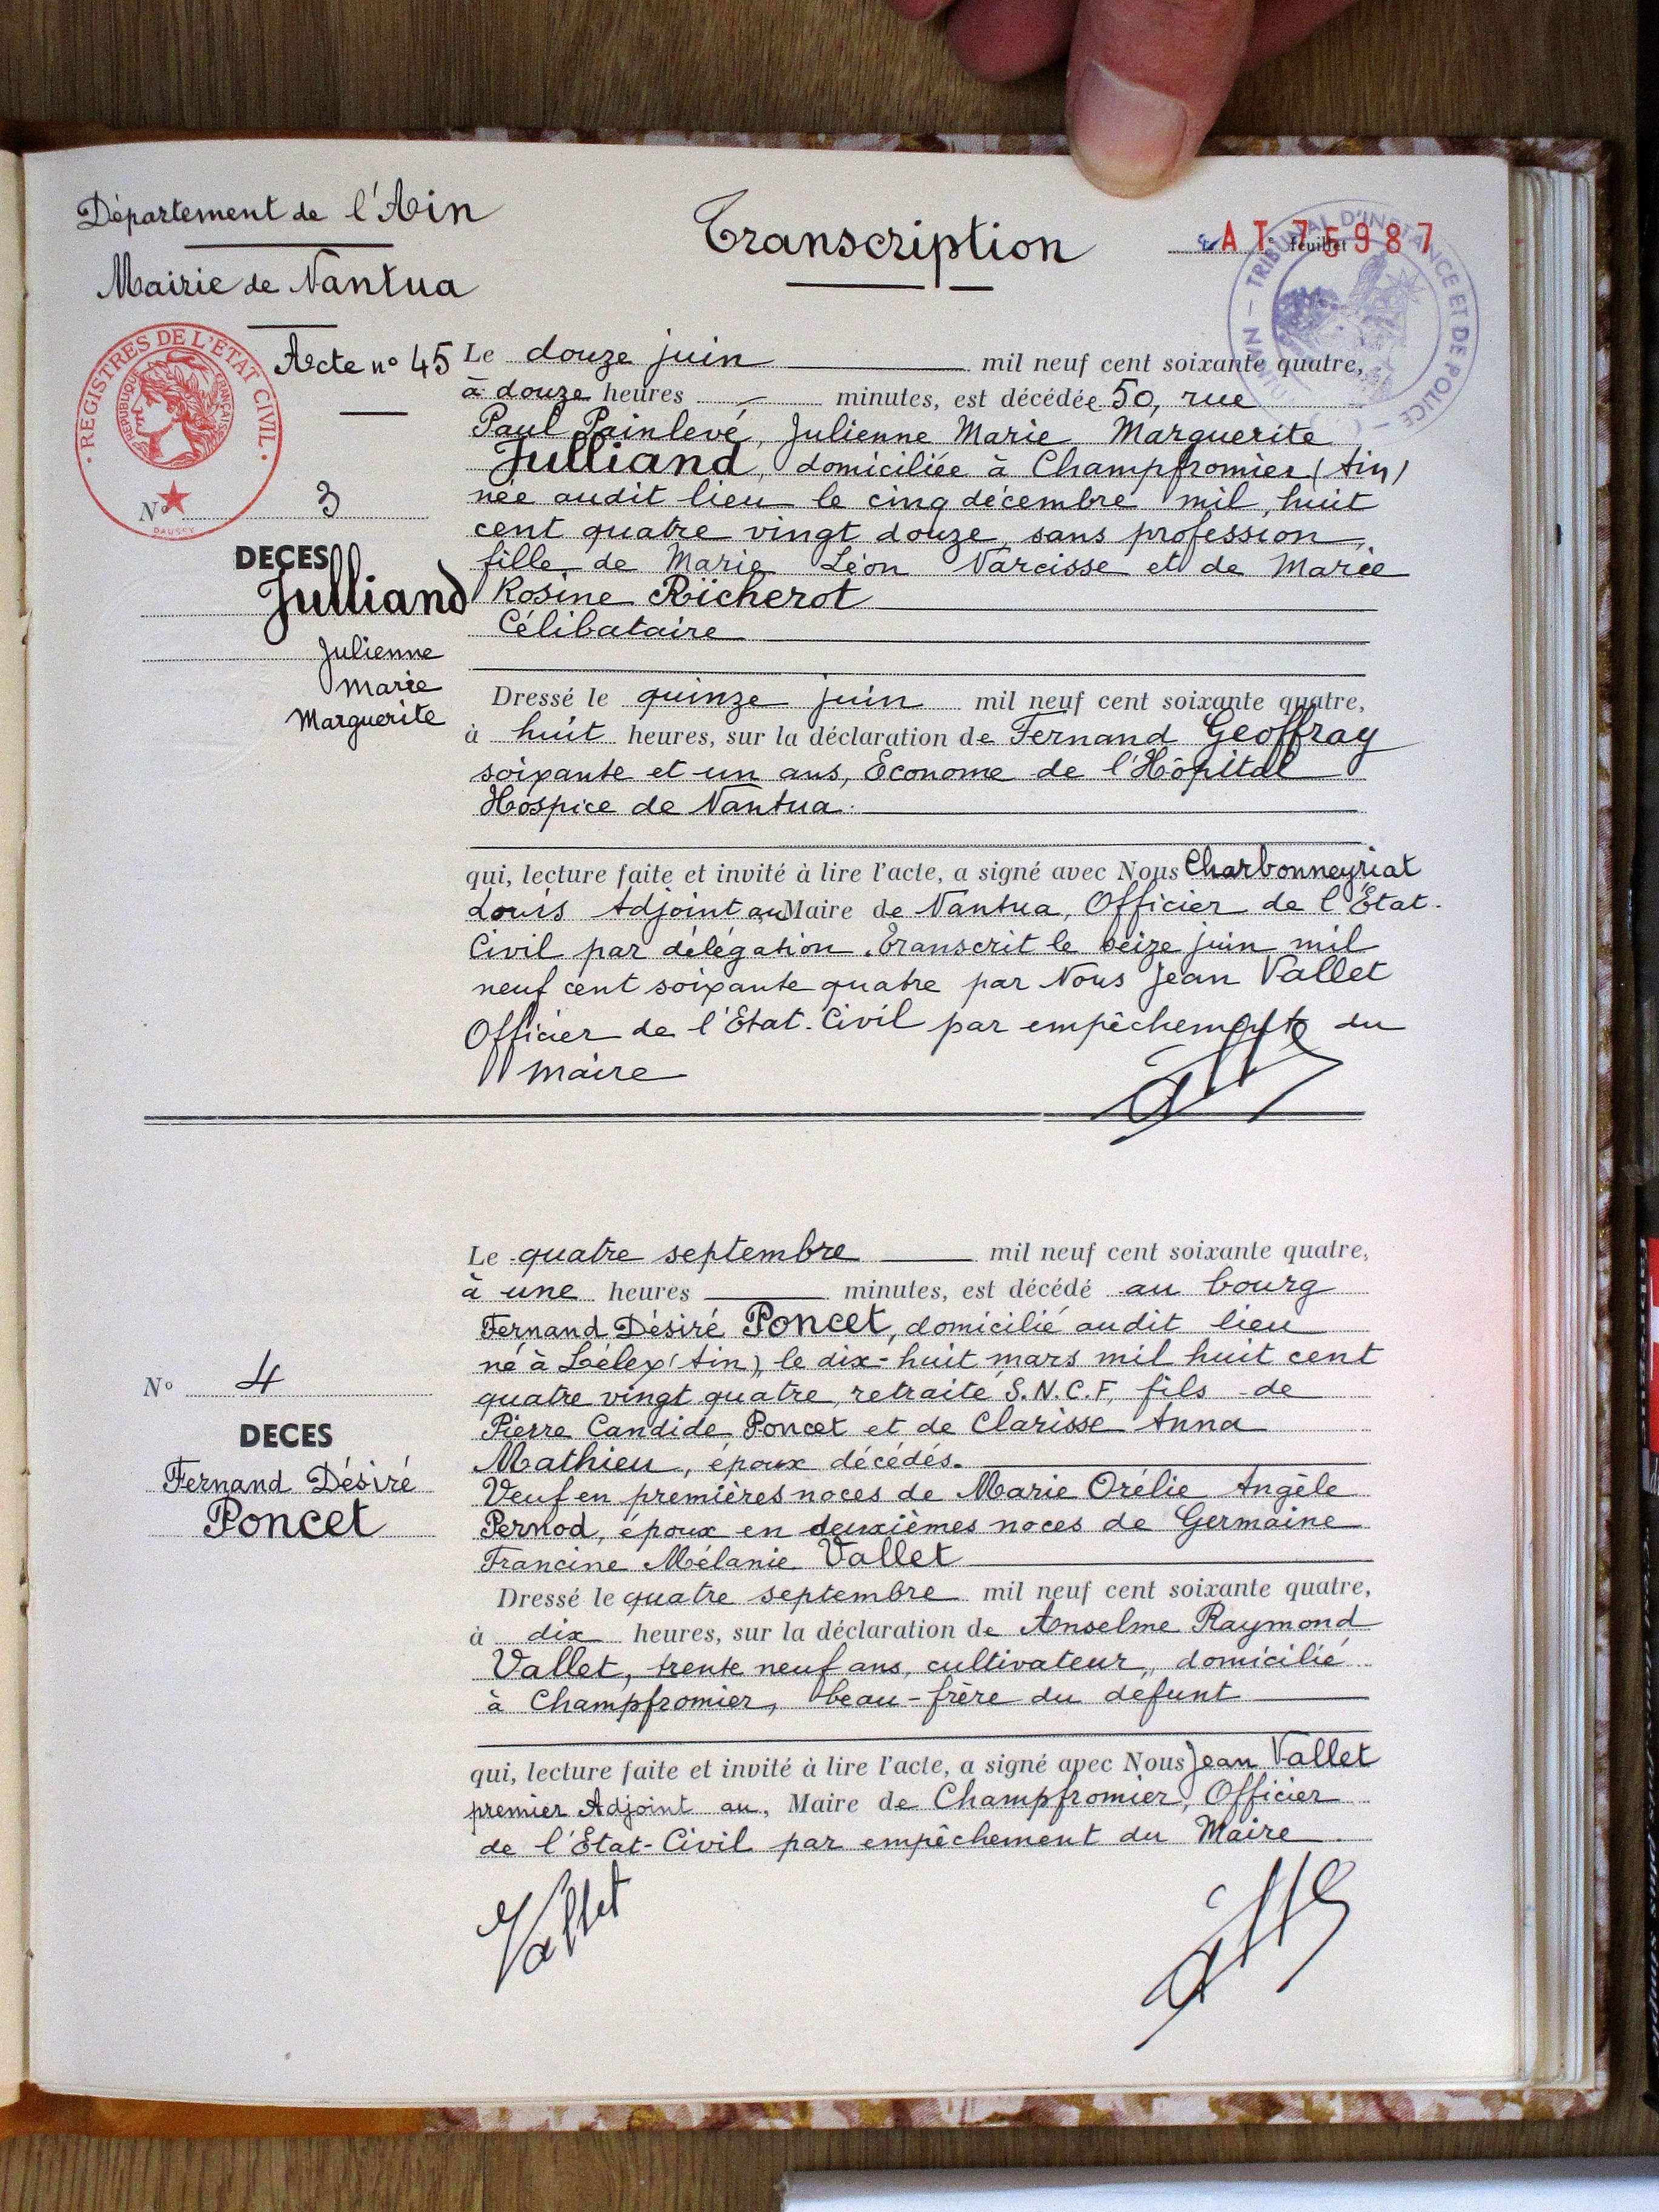 Département de l'Ain
Mairie de Nantua
Transcription
AT 75987
feuillet
TRIBUNAL D'INSTANCE ET DE POLICE
REGISTRES DE L'ETAT CIVIL
REPUBLIQUE FRANÇAISE
DAUSSY
Acte n° 45
N° 3
DECES
Julliand
Julienne
Marie
Marguerite
Le douze juin mil neuf cent soixante quatre,
à douze heures — minutes, est décédée 50, rue
Paul Painlevé, Julienne Marie Marguerite
Julliand, domiciliée à Champfromier (Ain)
née audit lieu le cinq décembre mil huit
cent quatre vingt douze, sans profession,
fille de Marie Léon Narcisse et de Marie
Rosine Richerot
Célibataire
Dressé le quinze juin mil neuf cent soixante quatre,
à huit heures, sur la déclaration de Fernand Geoffray
soixante et un ans, Econome de l'Hôpital
Hospice de Nantua.
qui, lecture faite et invité à lire l'acte, a signé avec Nous Charbonneyriat
Louis Adjoint au Maire de Nantua, Officier de l'Etat-
Civil par délégation. Transcrit le seize juin mil
neuf cent soixante quatre par Nous Jean Vallet
Officier de l'Etat-Civil par empêchement du
Maire
N° 4
DECES
Fernand Désiré
Poncet
Le quatre septembre mil neuf cent soixante quatre,
à une heures minutes, est décédé au bourg
Fernand Désiré Poncet, domicilié audit lieu
né à Lélex (Ain), le dix-huit mars mil huit cent
quatre vingt quatre, retraité S.N.C.F, fils de
Pierre Candide Poncet et de Clarisse Anna
Mathieu, époux décédés.
Veuf en premières noces de Marie Orélie Angèle
Pernod, époux en deuxièmes noces de Germaine
Francine Mélanie Vallet
Dressé le quatre septembre mil neuf cent soixante quatre,
à dix heures, sur la déclaration de Anselme Raymond
Vallet, trente neuf ans, cultivateur, domicilié
à Champfromier, beau-frère du défunt
qui, lecture faite et invité à lire l'acte, a signé avec Nous Jean Vallet
premier Adjoint au, Maire de Champfromier, Officier
de l'Etat-Civil par empêchement du Maire
Vallet